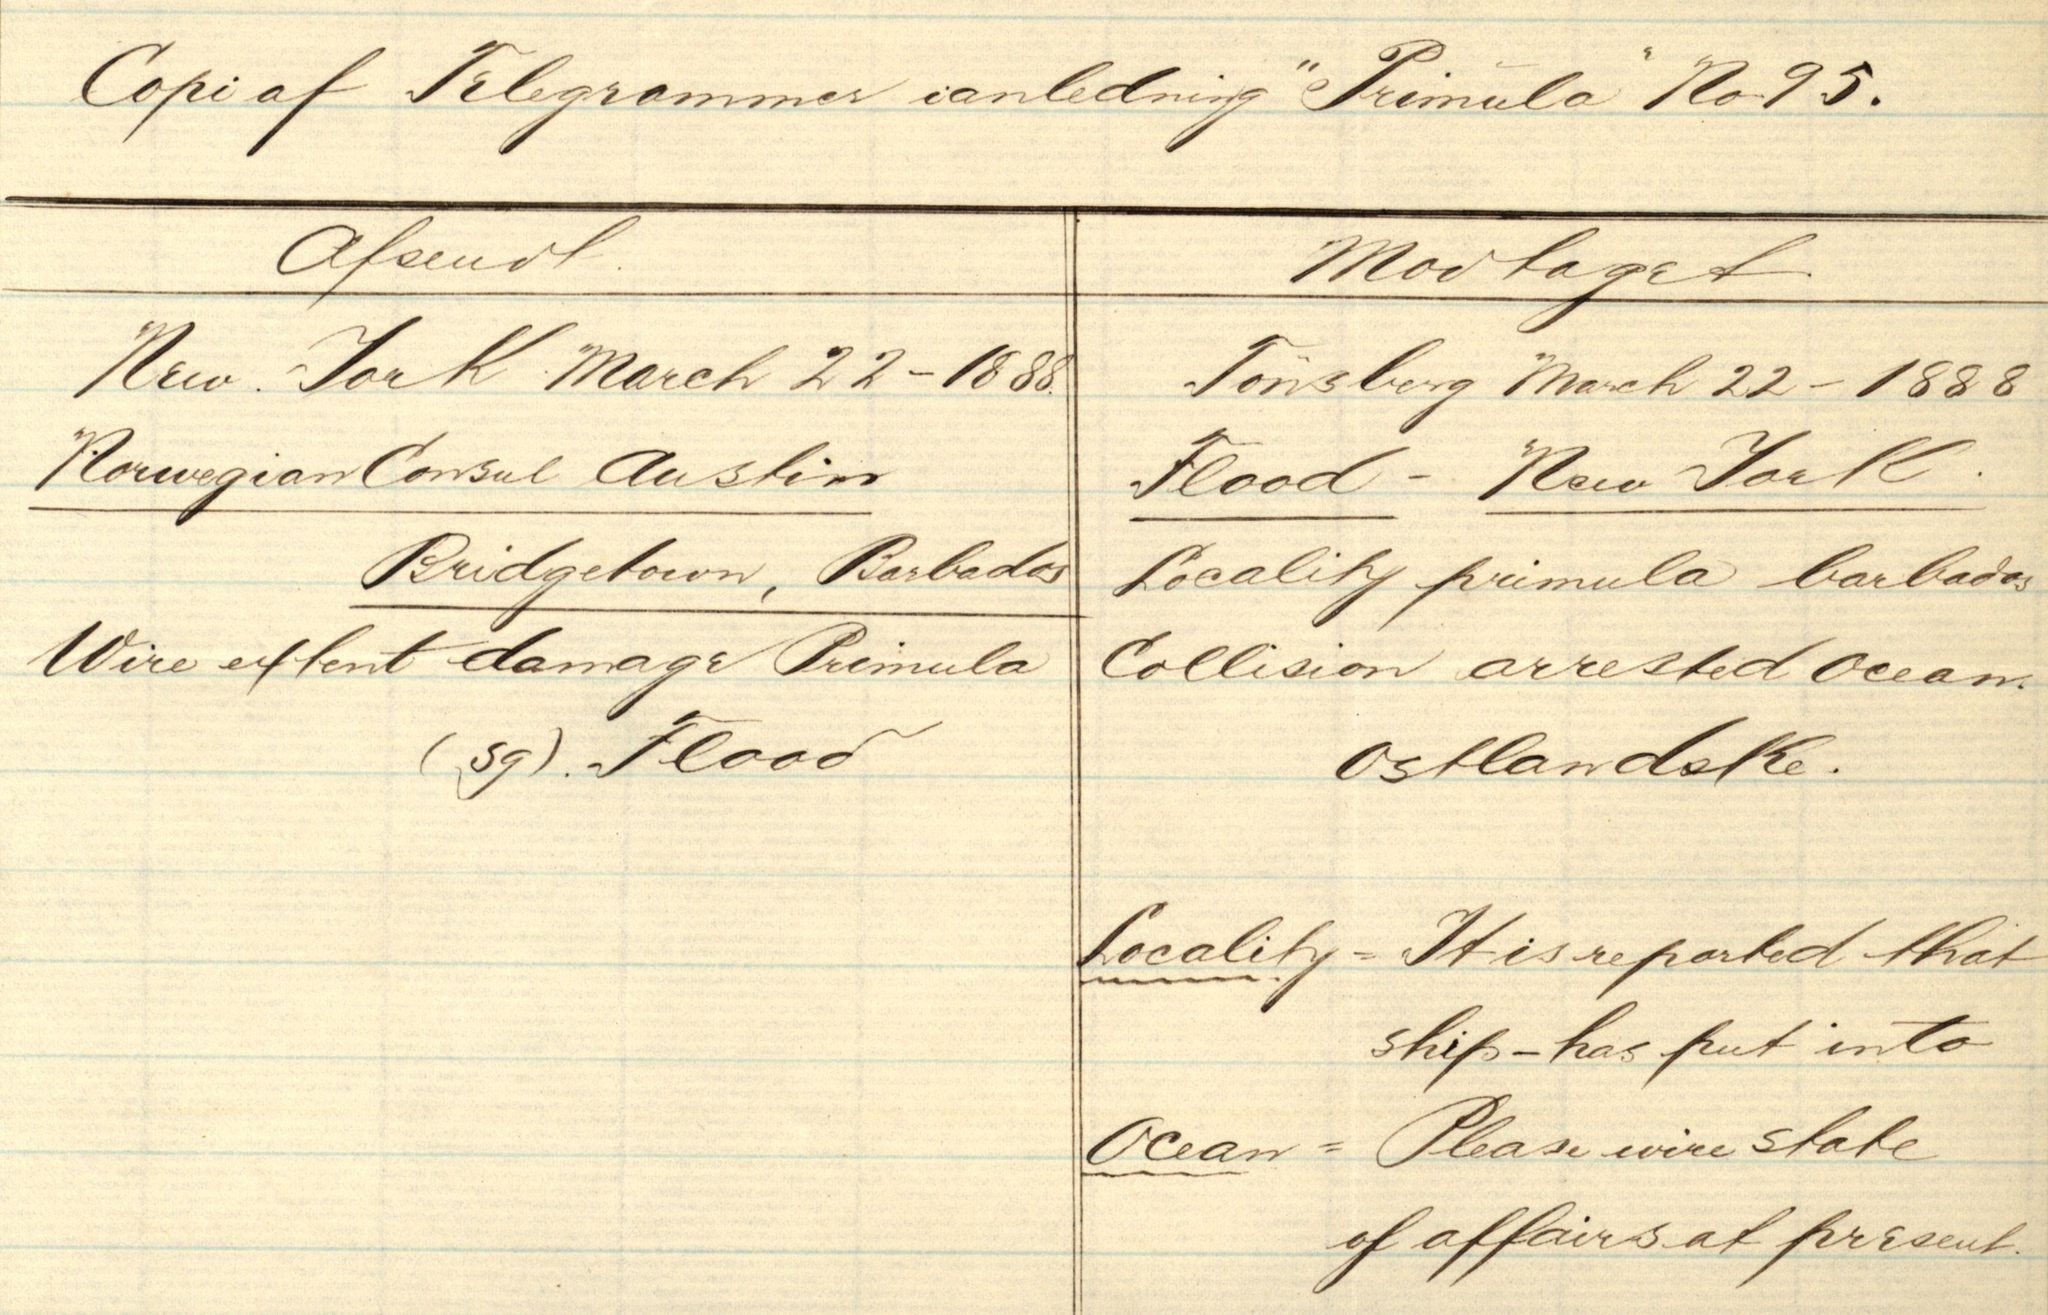 Copi af Telegrammer ianledning "Primula" No 95.
Afsendt.
New York March 22 - 1888.
Norwegian Consul Austin
Bridgetown, Barbados
Wire extent damage Primula
(sg). Flood
Modtaget
Tönsberg March 22 - 1888
Flood - New York.
Locality primula barbados
Collision arrested Ocean.
Ostlandske.
Locality = It is reported that
ship - has put into
Ocean = Please wire state
of affairs at present.